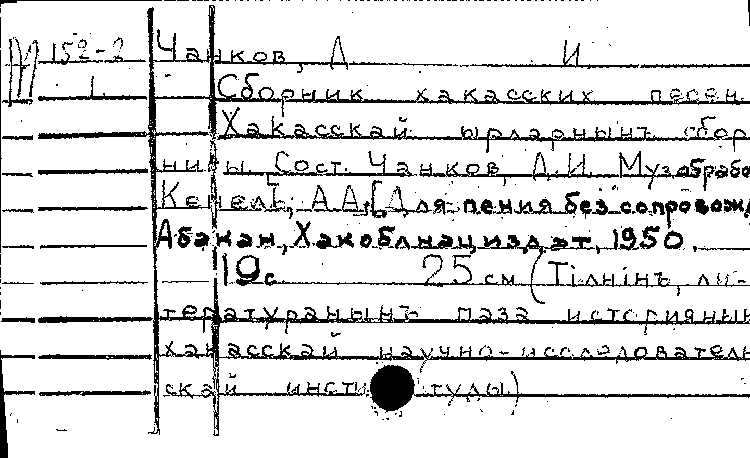 М 152-2 Чанков, Д И.
1. Сборник хакасских песен.
Хакасскай ырларнынъ сбор-
нигы, Сост. Чанков, Д. И. Музобрабо
Кенель, А. А. [Для пения без сопровожд
Абакан, Хакоблнациздат, 1950.
19с 25 см (Тiлнiнъ, ли-
тературанынъ паза историянынъ
хакасскай научно-исследователь
скай институды)